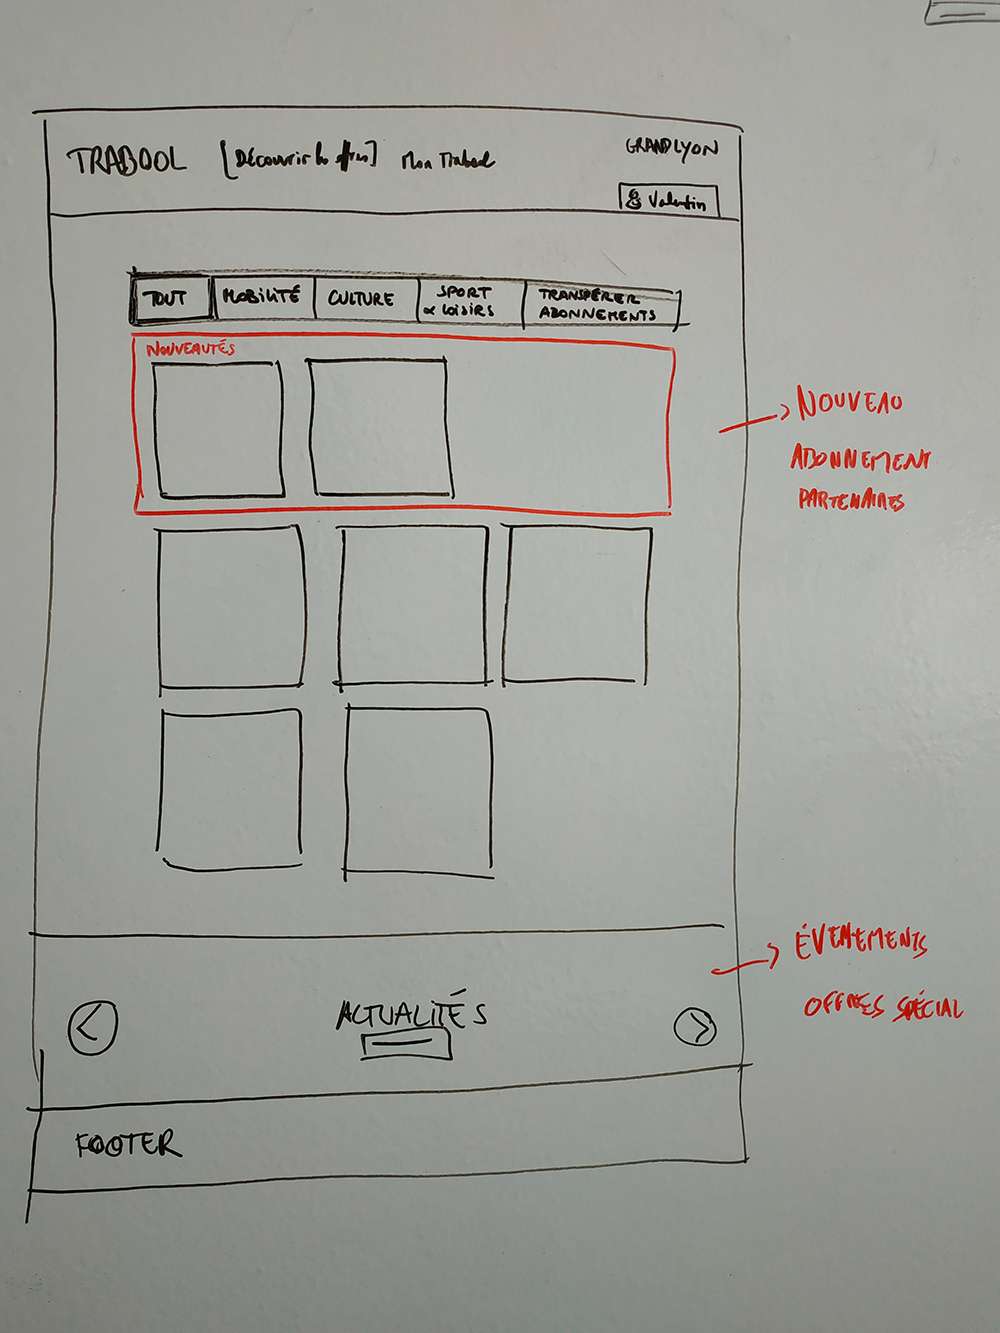 TRABOOL [Découvrir les offres] Mon Trabool
GRANDLYON
Valentin
TOUT
MOBILITÉ
CULTURE
SPORT
& LOISIRS
TRANSFÉRER
ABONNEMENTS
NOUVEAUTÉS
NOUVEAU
ABONNEMENT
PARTENAIRES
ÉVENEMENTS
OFFRES SPÉCIAL
ACTUALITÉS
FOOTER